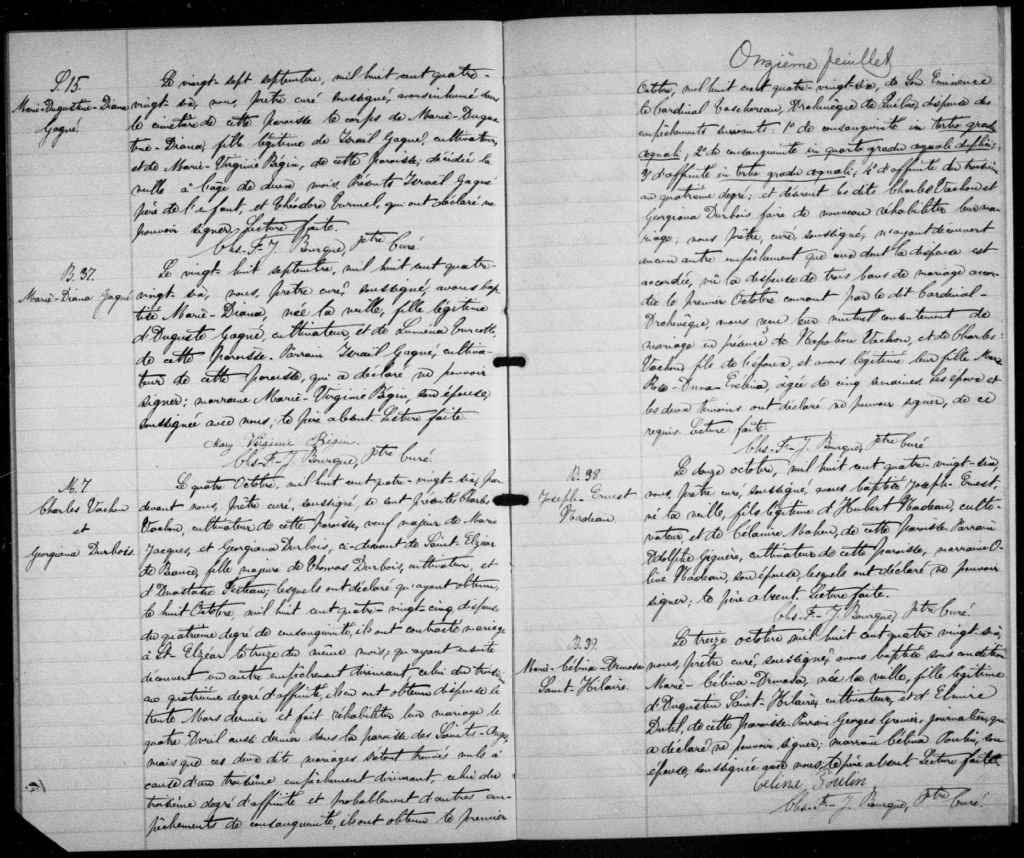 S. 15.
Marie-Augustine-Diana
Gagné.
Le vingt-sept septembre, mil huit cent quatre-
vingt-six, nous, prêtre curé soussigné, avons inhumé dans
le cimetière de cette paroisse le corps de Marie-Augus
tine-Diana, fille légitime de Israïl Gagné, cultivateur,
et de Marie-Virginie Bégin, de cette paroisse, décédée la
veille à l'âge de deux mois. Présents Israïl Gagné
père de l'enfant, et Théodore Turmel, qui ont déclaré ne
pouvoir signer. Lecture faite.
Chs.-F.-J. Bourque, Ptre Curé
B. 37.
Marie-Diana Gagné
Le vingt-huit septembre, mil huit cent quatre-
vingt-six, nous, prêtre curé, soussigné, avons bap
tisé Marie-Diana, née la veille, fille légitime
d'Auguste Gagné, cultivateur, et de Lumina Turcotte,
de cette paroisse. Parrain Israïl Gagné, cultiva-
teur de cette paroisse, qui a déclaré ne pouvoir
signer; marraine Marie-Virginie Bégin, son épouse,
soussignée avec nous; le père absent. Lecture faite
Mary Virginie Bégin
Chs.-F.-J. Bourque, Ptre Curé.
M. 7
Charles Vachon
et
Georgiana Durbois.
Le quatre Octobre, mil huit cent quatre-vingt-six, par
devant nous, prêtre curé, soussigné, se sont présentés Charles
Vachon, cultivateur de cette paroisse, veuf majeur de Marie
Jacques, et Georgiana Durbois, ci-devant de Saint-Elzéar
de Beauce, fille majeure de Thomas Durbois, cultivateur, et
d'Anastasie Ferteau; lesquels ont déclaré qu'ayant obtenu,
le huit Octobre, mil huit cent quatre-vingt-cinq dispense
du quatrième degré de consanguinité, ils ont contracté mariage
à St-Elzéar le treize du même mois; qu'ayant ensuite
découvert un autre empêchement dirimant, celui du troisième
au quatrième degré d'affinité, ils en ont obtenu dispense le
trente Mars dernier et fait réhabiliter leur mariage le
quatre Avril aussi dernier dans la paroisse des Saints-Anges,
mais que ces deux dits mariages s'étant trouvés nuls à
cause d'un troisième empêchement dirimant, celui du
troisième degré d'affinité et probablement d'autres em-
pêchements de consanguinité, ils ont obtenu le premier
Onzième feuillet
Octobre, mil huit cent quatre-vingt-six, de Son Eminence
le Cardinal Taschereau, Archevêque de Québec, dispense des
empêchements suivants: 1° de consanguinité in tertio gradu
æquali; 2° de consanguinité in quarto gradu æquali duplici;
3° d'affinité in tertio gradu æquali; 4° d'affinité du troisième
au quatrième degré; et désirent les dits Charles Vachon et
Georgiana Durbois faire de nouveau réhabiliter leur ma-
riage; nous prêtre, curé, soussigné, n'ayant découvert
aucun autre empêchement que ceux dont la dispense est
accordée, vu la dispense de trois bans de mariage accor-
dée le premier Octobre courant par le dit Cardinal-
Archevêque, avons reçu leur mutuel consentement de
mariage en présence de Napoléon Vachon, et de Charles
Vachon fils de l'époux, et avons légitimé leur fille Marie
Rose-Anna-Evelina, âgée de cinq semaines. Les époux et
les deux témoins ont déclaré ne pouvoir signer, de ce
requis. Lecture faite.
Chs.-F.-J. Bourque, Ptre Curé
B. 38
Joseph-Ernest
Nadeau.
Le douze octobre, mil huit cent quatre-vingt-six,
nous, prêtre curé, soussigné, avons baptisé Joseph-Ernest,
né la veille, fils légitime d'Hubert Nadeau, culti-
vateur, et de Célanire Maheu, de cette paroisse. Parrain
Adolphe Giguère, cultivateur de cette paroisse, marraine O-
live Nadeau, son épouse, lesquels ont déclaré ne pouvoir
signer; le père absent. Lecture faite.
Chs.-F.-J. Bourque, Ptre Curé.
B. 39.
Marie-Célina-Armosa
Saint-Hilaire.
Le treize octobre mil huit cent quatre-vingt-six,
nous, prêtre curé, soussigné, avons baptisé sous condition
Marie-Célina-Armosa, née la veille, fille légitime
d'Augustin Saint-Hilaire, cultivateur, et d'Elmire
Dutil, de cette paroisse. Parrain Georges Grenier, journalier, qui
a déclaré ne pouvoir signer; marraine Célina Poulin, son
épouse, soussignée avec nous, le père absent. Lecture faite
Celina Poulin
Chs.-F.-J. Bourque, Ptre Curé.